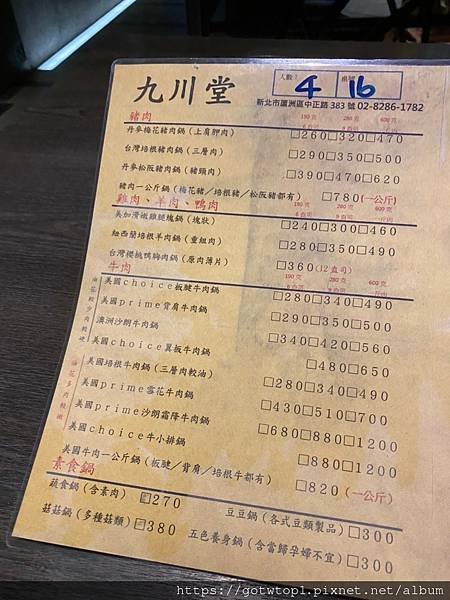 九川堂
人數 4 桌號 16
新北市蘆洲區中正路 383 號 02-8286-1782
豬肉 190克 6盎司 280克 9盎司 600克 一公斤
丹麥梅花豬肉鍋 (上肩胛肉) □260□320□470
台灣培根豬肉鍋 (三層肉) □290□350□500
丹麥松阪豬肉鍋 (豬頸肉) □390□470□620
豬肉一公斤鍋 (梅花豬/培根豬/松阪豬都有) □780(一公斤)
雞肉、羊肉、鴨肉 190克 6盎司 280克 9盎司 600克 一斤肉
美加滑嫩雞腿塊鍋 (塊狀) □240□300□460
紐西蘭培根羊肉鍋 (重組肉) □280□350□490
台灣櫻桃鴨胸肉鍋 (原肉薄片) □360(12盎司)
牛肉 190克 6盎司 280克 9盎司 600克 一斤肉
油花較少肉較硬
美國choice板腱牛肉鍋 □280□340□490
美國prime背肩牛肉鍋 □290□350□500
澳洲沙朗牛肉鍋 □340□420□560
美國choice翼板牛肉鍋 □480□650
油花多肉較嫩
美國培根牛肉鍋 (三層肉較油) □280□340□490
美國prime雪花牛肉鍋 □430□510□700
美國prime沙朗霜降牛肉鍋 □680□880□1200
美國choice牛小排鍋 □880□1200
美國牛肉一公斤鍋 (板腱/背肩/培根牛都有) □820(一公斤)
素食鍋
蔬食鍋 (含素肉) □270 豆豆鍋 (各式豆類製品) □300
菇菇鍋 (多種菇類) □380 五色養身鍋 (含當歸孕婦不宜) □300
https://gotwtop1.pixnet.net/album